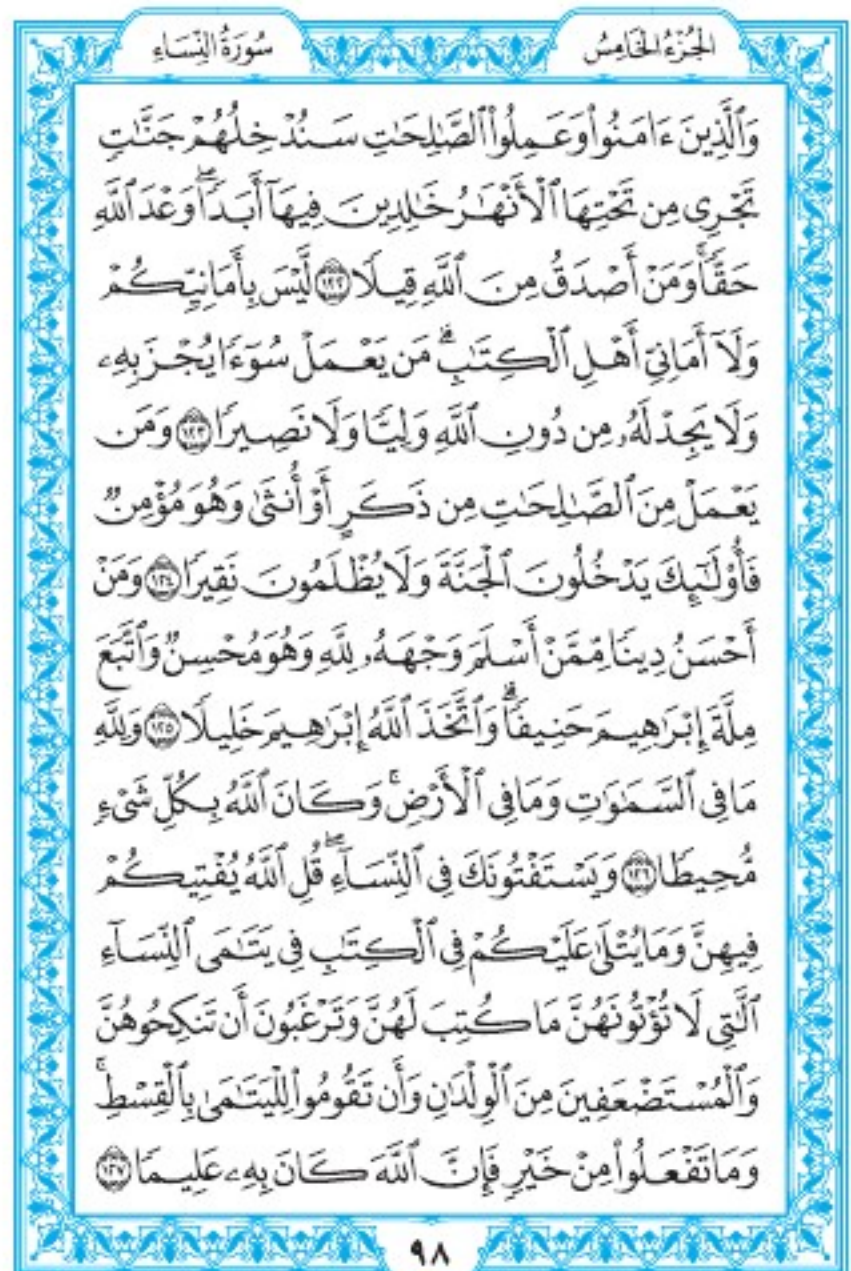 الجُزْءُ الخَامِسُ
سُورَةُ النِّسَاءِ
وَٱلَّذِينَ ءَامَنُواْ وَعَمِلُواْ ٱلصَّٰلِحَٰتِ سَنُدْخِلُهُمْ جَنَّٰتٖ
تَجْرِي مِن تَحْتِهَا ٱلْأَنْهَٰرُ خَٰلِدِينَ فِيهَآ أَبَدٗاۖ وَعْدَ ٱللَّهِ
حَقّٗاۚ وَمَنْ أَصْدَقُ مِنَ ٱللَّهِ قِيلٗا ١٢٢ لَّيْسَ بِأَمَانِيِّكُمْ
وَلَآ أَمَانِيِّ أَهْلِ ٱلْكِتَٰبِۗ مَن يَعْمَلْ سُوٓءٗا يُجْزَ بِهِۦ
وَلَا يَجِدْ لَهُۥ مِن دُونِ ٱللَّهِ وَلِيّٗا وَلَا نَصِيرٗا ١٢٣ وَمَن
يَعْمَلْ مِنَ ٱلصَّٰلِحَٰتِ مِن ذَكَرٍ أَوْ أُنثَىٰ وَهُوَ مُؤْمِنٞ
فَأُوْلَٰٓئِكَ يَدْخُلُونَ ٱلْجَنَّةَ وَلَا يُظْلَمُونَ نَقِيرٗا ١٢٤ وَمَنْ
أَحْسَنُ دِينٗا مِّمَّنْ أَسْلَمَ وَجْهَهُۥ لِلَّهِ وَهُوَ مُحْسِنٞ وَٱتَّبَعَ
مِلَّةَ إِبْرَٰهِيمَ حَنِيفٗاۗ وَٱتَّخَذَ ٱللَّهُ إِبْرَٰهِيمَ خَلِيلٗا ١٢٥ وَلِلَّهِ
مَا فِي ٱلسَّمَٰوَٰتِ وَمَا فِي ٱلْأَرْضِۚ وَكَانَ ٱللَّهُ بِكُلِّ شَيْءٖ
مُّحِيطٗا ١٢٦ وَيَسْتَفْتُونَكَ فِي ٱلنِّسَآءِۖ قُلِ ٱللَّهُ يُفْتِيكُمْ
فِيهِنَّ وَمَا يُتْلَىٰ عَلَيْكُمْ فِي ٱلْكِتَٰبِ فِي يَتَٰمَى ٱلنِّسَآءِ
ٱلَّٰتِي لَا تُؤْتُونَهُنَّ مَا كُتِبَ لَهُنَّ وَتَرْغَبُونَ أَن تَنكِحُوهُنَّ
وَٱلْمُسْتَضْعَفِينَ مِنَ ٱلْوِلْدَٰنِ وَأَن تَقُومُواْ لِلْيَتَٰمَىٰ بِٱلْقِسْطِۚ
وَمَا تَفْعَلُواْ مِنْ خَيْرٖ فَإِنَّ ٱللَّهَ كَانَ بِهِۦ عَلِيمٗا ١٢٧
٩٨